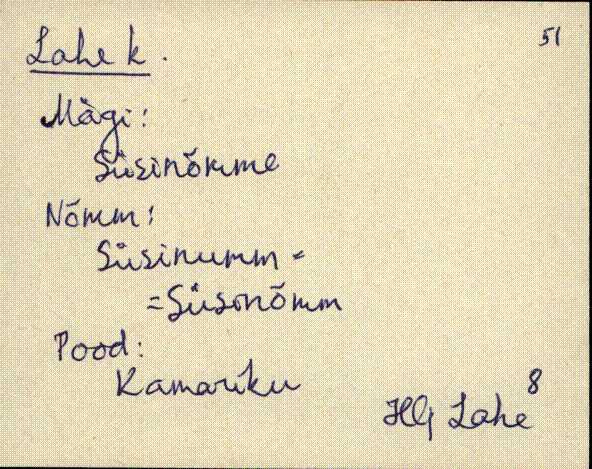 51
Lahe k.
Mägi:
Süsinõmme
Nõmm:
Süsinumm =
= Süsinõmm
Pood:
Kamariku
Hlj Lahe 8